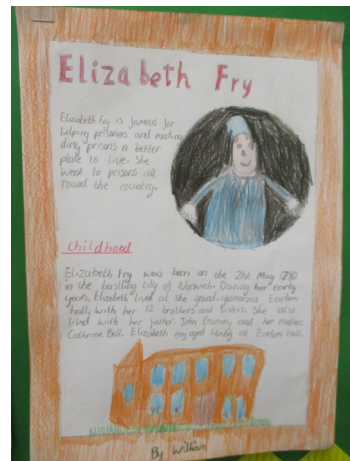 Elizabeth Fry
Elizabeth Fry is famous for
helping prisoners and making
dirty prisons a better
place to live. She
went to prisons all
round the country.
Childhood
Elizabeth Fry was born on the 21st May 1780
in the bustling city of Norwich. During her early
years, Elizabeth lived at the grand, glamorous Earlham
hall, with her 12 brothers and sisters. She also
lived with her father, John Gurney and her mother
Cathrine Bell. Elizabeth enjoyed living at Earlham hall.
By William